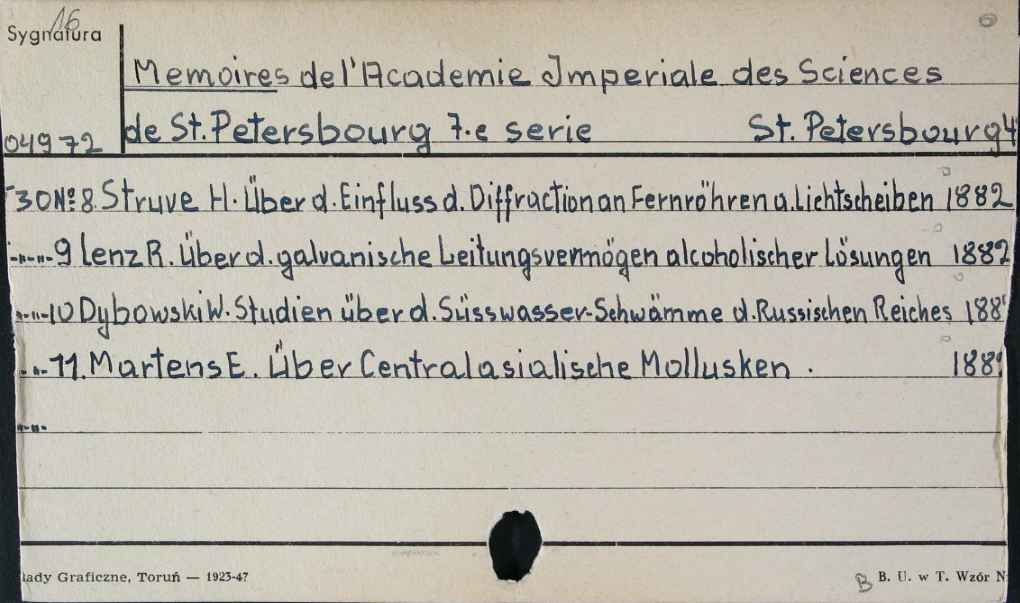 16
Sygnatura
Memoires de l'Academie Imperiale des Sciences
04972
de St. Petersbourg 7.e serie St. Petersbourg 4
T 30 Nº 8. Struve H. Über d. Einfluss d. Diffraction an Fernröhren a. Lichtscheiben 1882
-"-"- 9 Lenz R. Über d. galvanische Leitungsvermögen alcoholischer Lösungen 1882
-"-"- 10 Dybowski W. Studien über d. Süsswasser-Schwämme d. Russischen Reiches 188
-"- 11. Martens E. Über Centralasialische Mollusken . 188
-"-"-
łady Graficzne, Toruń — 1923-47
B B. U. w T. Wzór N